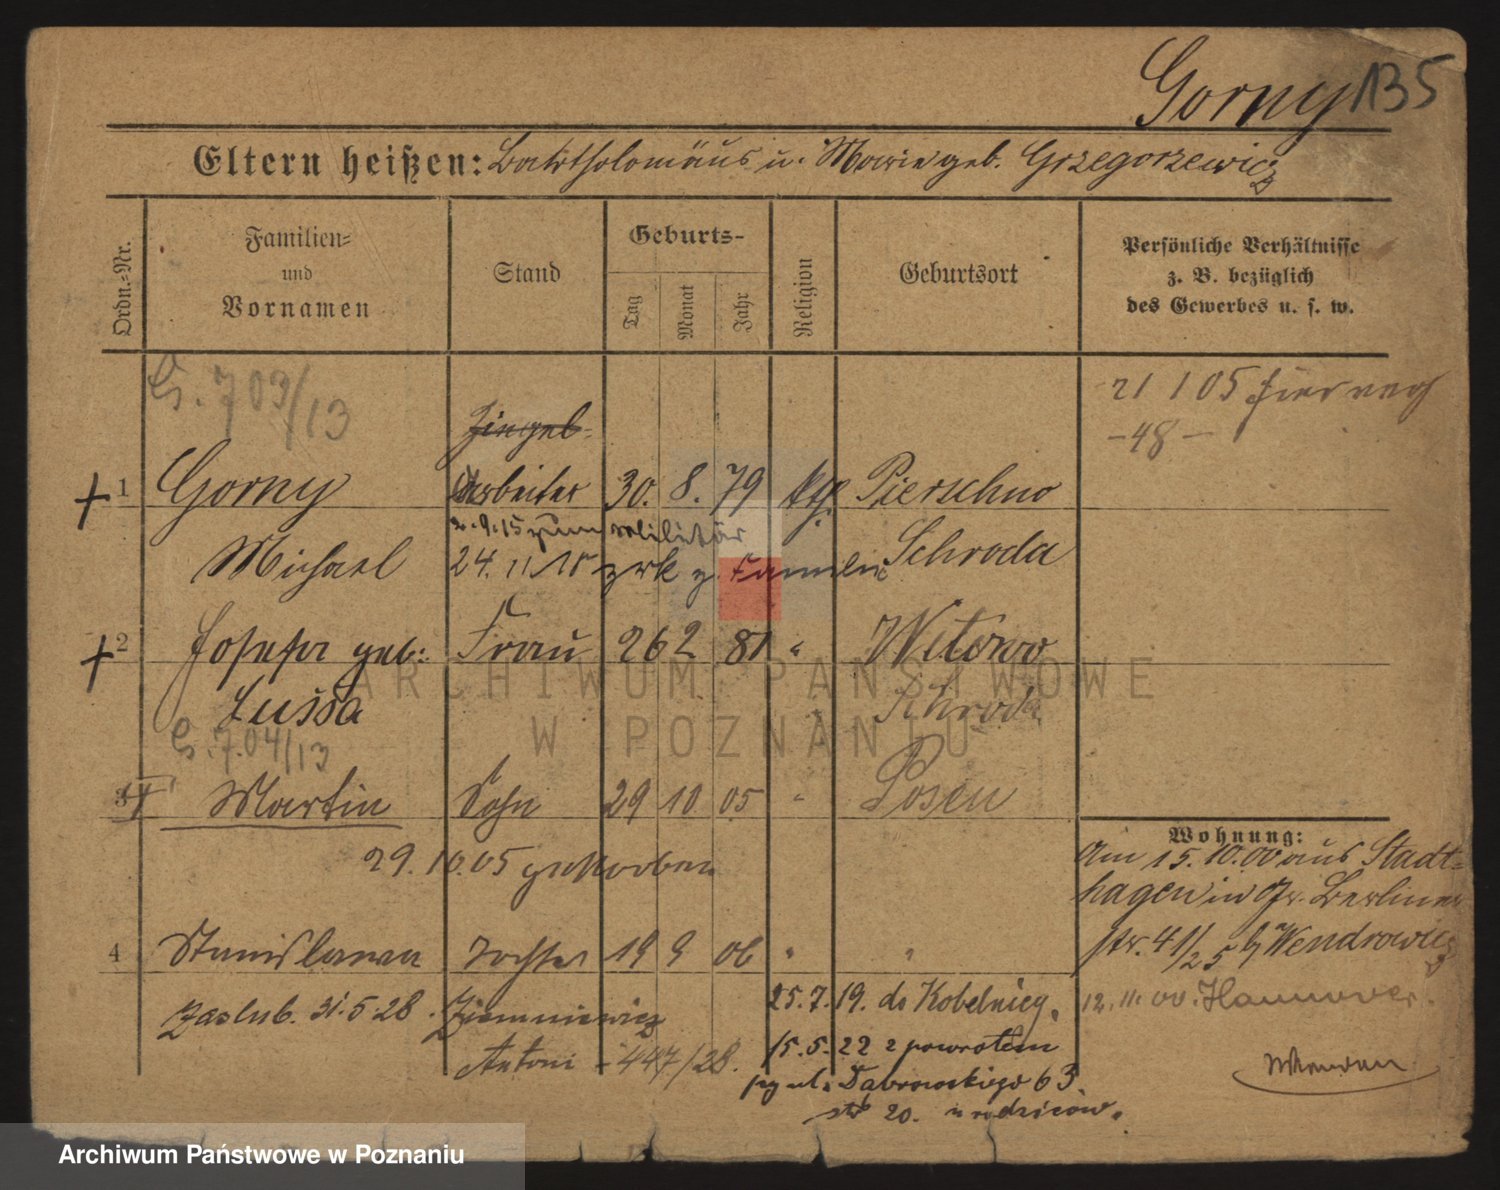 Gorny 135
Eltern heißen: Bartholomäus u. Marie geb. Grzegorzewicz
Ordn.-Nr.
Familien-
und
Vornamen
Stand
Geburts-
Tag
Monat
Jahr
Religion
Geburtsort
Persönliche Verhältnisse
z. B. bezüglich
des Gewerbes u. s. w.
G. 703/13
21 1 05
-48-
Ziegel-
1 Gorny Arbeiter 30. 8. 79 kth. Pierschno
2.9.15 zum Militär
Michael 24. 11 15 zrk z. Familie Schroda
2 Josefa geb: Frau 26 2 81 " Witowo
Lussa Schroda
G. 704/13
3 Martin Sohn 29 10 05 " Posen
29.10.05 gestorben
Wohnung:
Am 15.10.00 aus Stadt-
hagen in Gr. Berliner
str. 41/25 b/ Wendrowicz
4 Stanislawa Tochter 19 9 06 " "
zaslub. 31.5.28. Ziemniewicz
25.7.19. do Kobelnicy.
12.11.00. Hannover.
Antoni - 447/28.
15.5.22 z powrotem
ul. Dąbrowskiego 63
20. u rodziców.
ARCHIWUM PAŃSTWOWE
W POZNANIU
Archiwum Państwowe w Poznaniu